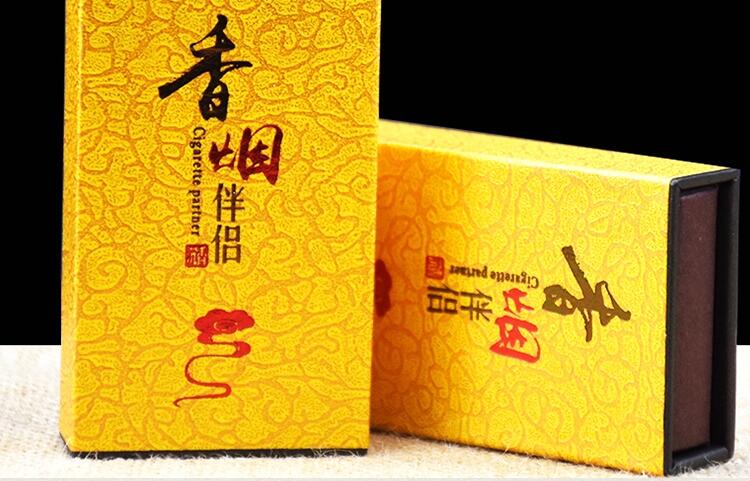 香烟伴侣
Cigarette partner
香烟伴侣
Cigarette partner